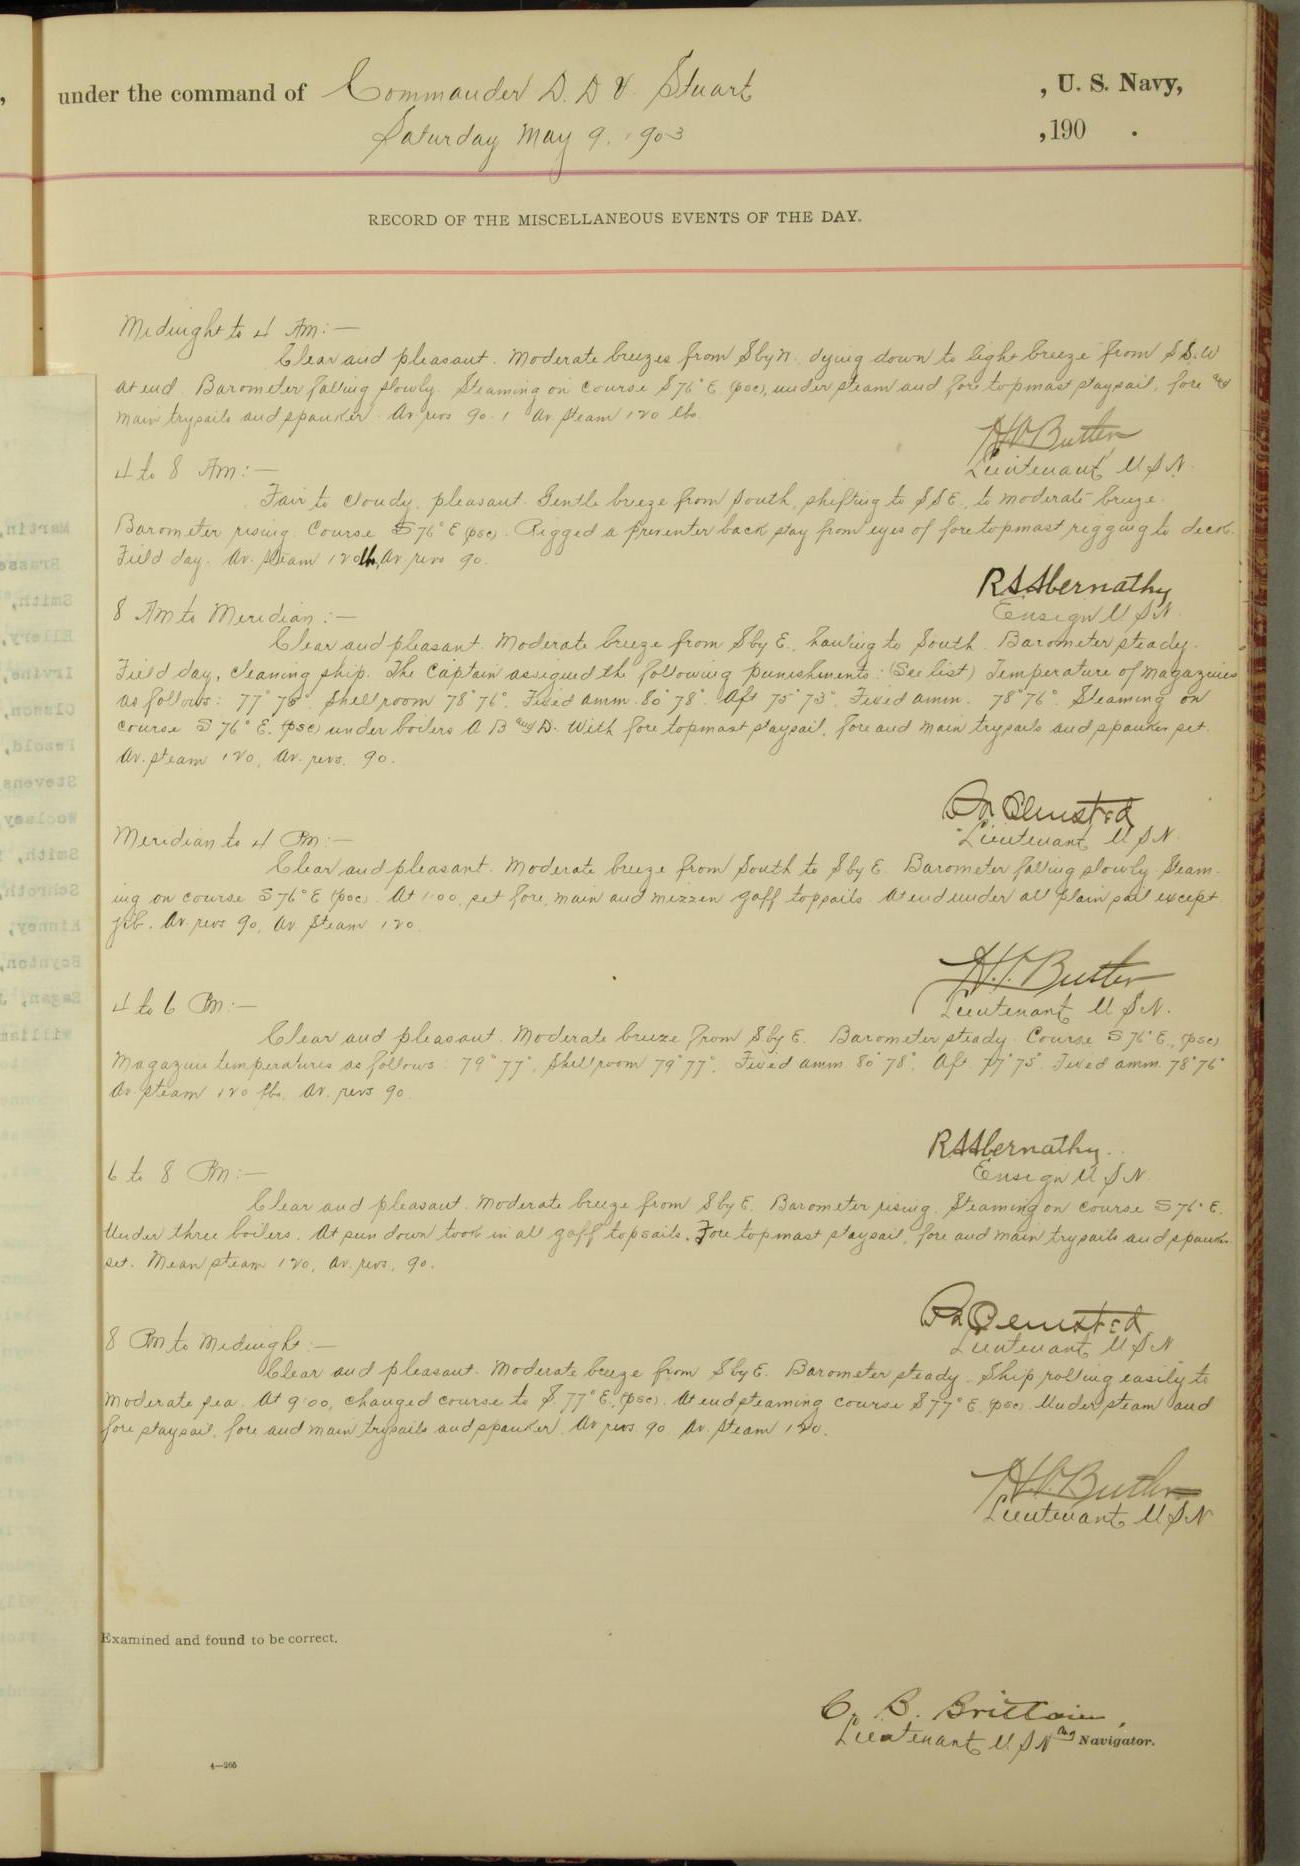 under the command of Commander D. D. V. Stuart , U. S. Navy,
Saturday May 9, 1903 , 190 .
RECORD OF THE MISCELLANEOUS EVENTS OF THE DAY.
Midnight to 4 Am:—
Clear and pleasant. Moderate breezes from S by W. dying down to light breeze from S S. W
at end. Barometer falling slowly. Steaming on course S 76° E (psc), under steam and fore topmast staysail, fore and
main trysails and spanker. Av. revs 90.1 Av. steam 120 lbs.
Lieutenant U S N.
4 to 8 Am:—
Fair to cloudy, pleasant. Gentle breeze from South, shifting to S S E., to moderate breeze.
Barometer rising. Course S 76° E (psc). Rigged a preventer back stay from eyes of fore topmast rigging to deck.
Field day. Av. steam 120 lb, Av revs 90.
R S Abernathy
Ensign U S N.
8 Am to Meridian:—
Clear and pleasant. Moderate breeze from S by E., hauling to South. Barometer steady.
Field day, cleaning ship. The Captain assigned the following punishments: (See list) Temperature of magazines
as follows: 77° 75° Shellroom 78° 76°, Fixed amm. 80° 78°. Aft 75° 73°, Fixed amm. 78° 76°. Steaming on
course S 76° E. (psc) under boilers A B and D. With fore topmast staysail, fore and main trysails and spanker set.
Av. steam 120, Av. revs. 90.
Olmsted
Lieutenant U S N.
Meridian to 4 Pm:—
Clear and pleasant. Moderate breeze from South to S by E. Barometer falling slowly. Steam-
ing on course S 76° E (psc). At 1:00, set fore, main and mizzen gaff topsails. At end under all plain sail except
jib. Av. revs 90, Av. Steam 120.
Butler
Lieutenant U S N.
4 to 6 Pm:—
Clear and pleasant. Moderate breeze from S by E. Barometer steady. Course S 76° E., (psc)
Magazine temperatures as follows: 79° 77°, Shellroom 79° 77°, Fixed amm. 80° 78°. Aft. 77° 75°. Fixed amm. 78° 76°
Av. steam 120 lbs. Av. revs 90.
R S Abernathy.
Ensign U S N.
6 to 8 Pm:—
Clear and pleasant. Moderate breeze from S by E. Barometer rising. Steaming on course S 76° E.
Under three boilers. At sun down took in all gaff topsails. Fore topmast staysail, fore and main trysails and spanker
set. Mean steam 120, Av. revs, 90.
Olmsted
Lieutenant U S N
8 Pm to Midnight:—
Clear and pleasant. Moderate breeze from S by E. Barometer steady. Ship rolling easily to
moderate sea. At 9:00, changed course to S. 77° E., (psc). At end steaming course S 77° E. (psc). Under steam and
fore staysail, fore and main trysails and spanker. Av revs 90. Av. Steam 120.
Butler
Lieutenant U S N
Examined and found to be correct.
C. B. Brittain,
Lieutenant U S N and Navigator.
4—265